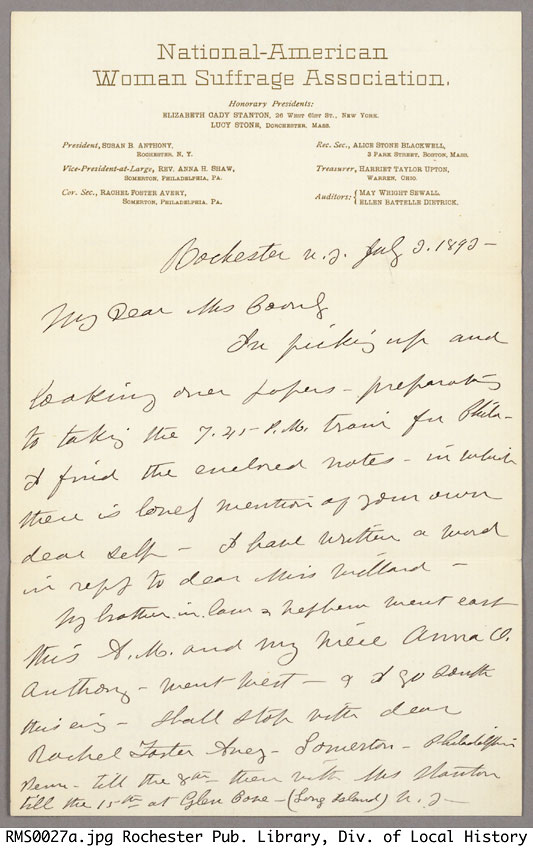 National-American
Woman Suffrage Association.
Honorary Presidents:
ELIZABETH CADY STANTON, 26 WEST 61ST ST., NEW YORK.
LUCY STONE, DORCHESTER, MASS.
President, SUSAN B. ANTHONY,
ROCHESTER, N. Y.
Vice-President-at-Large, REV. ANNA H. SHAW,
SOMERTON, PHILADELPHIA, PA.
Cor. Sec., RACHEL FOSTER AVERY,
SOMERTON, PHILADELPHIA, PA.
Rec. Sec., ALICE STONE BLACKWELL,
3 PARK STREET, BOSTON, MASS.
Treasurer, HARRIET TAYLOR UPTON,
WARREN, OHIO.
Auditors: { MAY WRIGHT SEWALL.
ELLEN BATTELLE DIETRICK.
Rochester N.Y. July 189
My Dear Mrs
In picking up and
looking over papers - preparatory
to taking the 7.45 P.M. train for Phila-
I find the enclosed notes - in which
there is lovely mention of your own
dear self - I have written a word
in reply to dear Miss Willard -
My brother-in-law & nephew went east
this A.M. and my niece Anna O.
Anthony - went West - & I go South
this eve'g - shall stop with dear
Rachel Foster Avery - Somerton - Philadelphia
Penn - till the 8th - then with Mrs Stanton
till the 15th at Glen Cove - (Long Island) N.Y -
RMS0027a.jpg Rochester Pub. Library, Div. of Local History